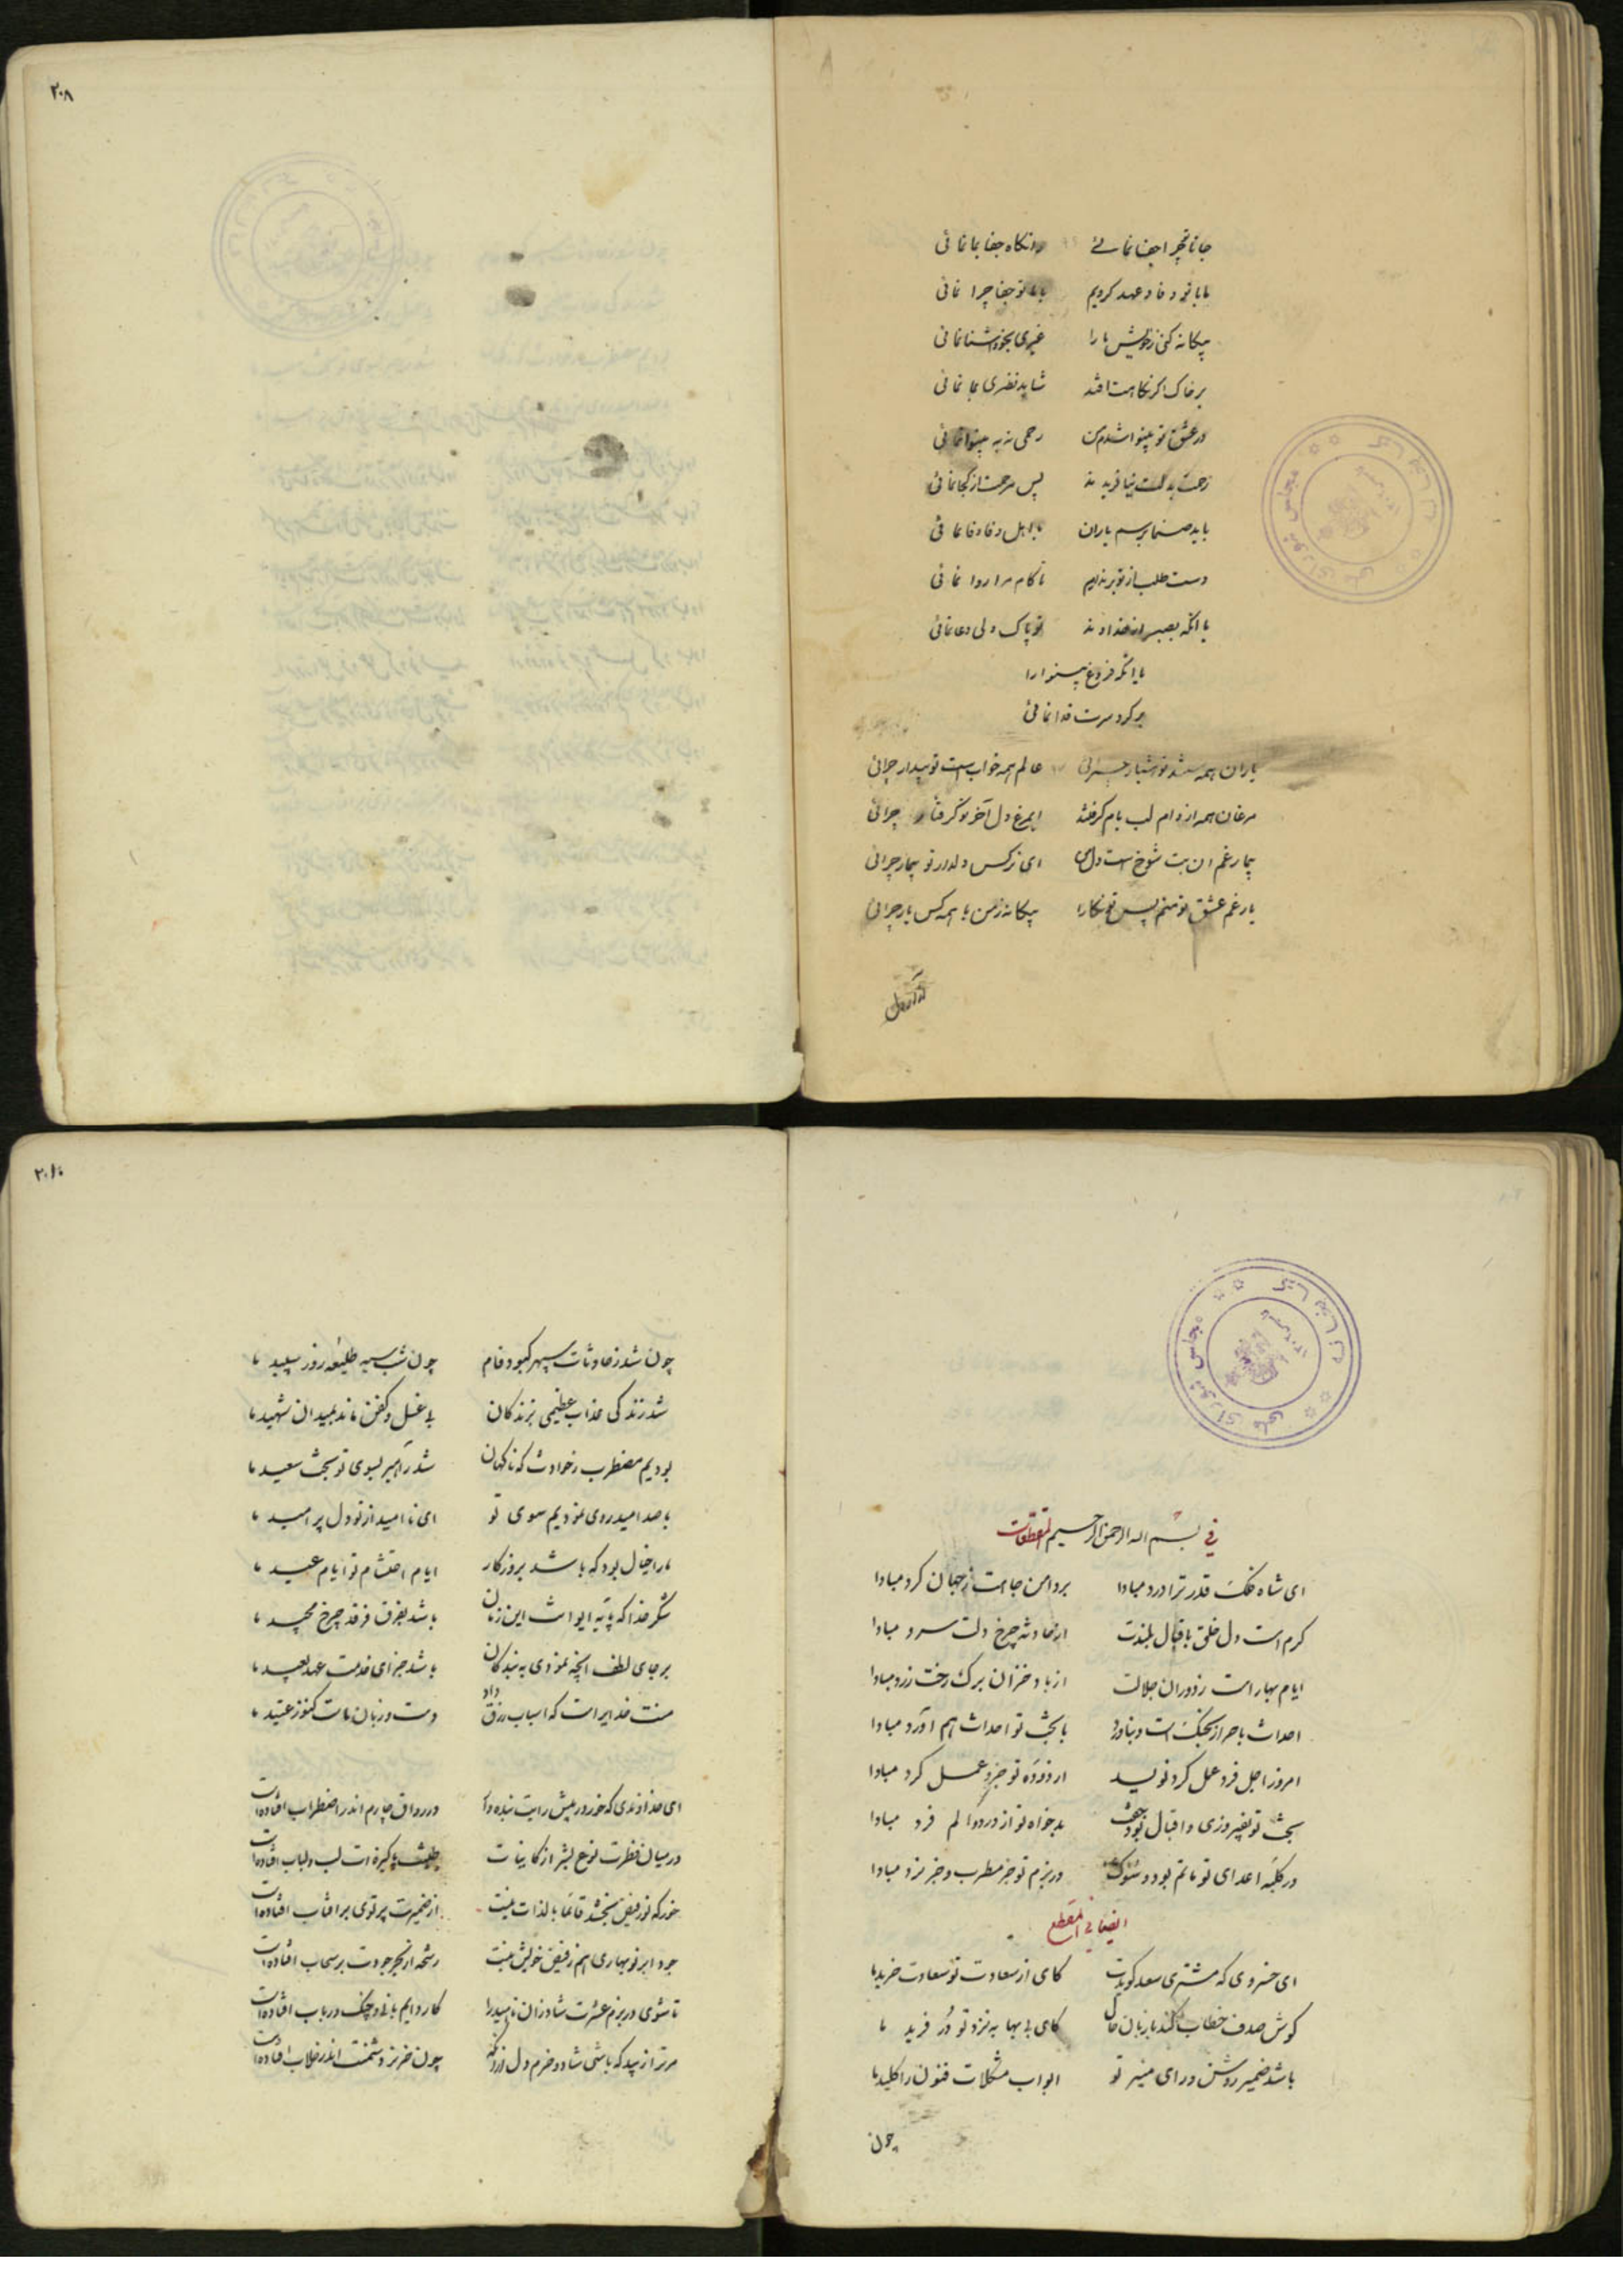 جانا بچرا جفا نمائے وانکاه جفا بما نمائی
ما با تو وفا و عهد کردیم با ما تو جفا چرا نمائی
بیکانه کنی ز خویش ما را غیری بخود اشنا نمائی
بر خاک اکر نکاهت افتد شاید نظری بما نمائی
در عشق تو بینوا شدم من رحمی نه به بینوا نمائی
رحمت بدلت نیافریدند پس مرحمت از کجا نمائی
باید صنما برسم یاران با اهل وفا وفا نمائی
دست طلب از تو برنداریم تا کام مرا روا نمائی
با انکه فروغ بینوا را
بر کرد سرت فدا نمائی
یاران همه مستند تو هشیار چرائی عالم همه خوابست تو بیدار چرائی
مرغان همه از دام لب بام کرفتند ایمرغ دل آخر تو کرفتار چرائی
بیمار غم ان بت شوخ است دل من ای نرکس دلدار تو بیمار چرائی
یار غم عشق تو منم پس تو نکارا بیکانه ز من با همه کس یار چرائی
۲۰۸
فی بسم الله الرحمن الرحیم المقطعات
ای شاه فلک قدر ترا درد مبادا بر دامن جاهت ز جهان کرد مبادا
کرم است دل خلق باقبال بلندت از حادثه چرخ دلت سرد مبادا
ایام بهار است ز دوران جلالت از باد خزان برک رخت زرد مبادا
امروز اجل فرد عمل کرد نویسد
بخت تو بفیروزی و اقبال بود جفت بدخواه تو از درد و الم فرد مبادا
در کلبه اعدای تو ماتم بود و سوک در بزم تو جز مطرب و جز نرد مبادا
ایضا فی المقطع
ای خسروی که مشتری سعد کویدت کای از سعادت تو سعادت خرید ما
کوش صدف خطاب کند با زبان حال کای بی بها به نزد تو در فرید ما
باشد ضمیر روشن و رای منیر تو ابواب مشکلات فنون را کلید ما
چون
چون شد ز حادثات سپهر کبود فام چون شب سیه طلیعه روز سپید ما
شد زندکی عذاب عظیمی بزندکان بی غسل و کفن ماند بمیدان شهید ما
بودیم مضطرب ز حوادث که ناکهان شد راهبر بسوی تو بخت سعید ما
با صد امید روی نمودیم سوی تو ای نا امید از تو دل پر امید ما
ما را خیال بود که باشد بروزکار ایام احتشام تو ایام عید ما
شکر خدا که پایه ایوانت این زمان باشد بفرق فرقد چرخ مجید ما
بر جای لطف انچه نمودی به بندکان باشد جزای خدمت عهد بعید ما
منت خدایراست که اسباب رزق داد
ای خداوندی که خور در پیش رایت بنده وار در رواق چارم اندر اضطراب افتاده است
در میان فطرت نوع بشر از کاینات طینت پاکیزه ات لب لباب افتاده است
از ضمیرت پرتوی بر افتاب افتاده است
جود ابر نوبهاری هم ز فیض خویش نیست رشحه از بحر جودت بر سحاب افتاده است
کار دایم با نی و چنک و رباب افتاده است